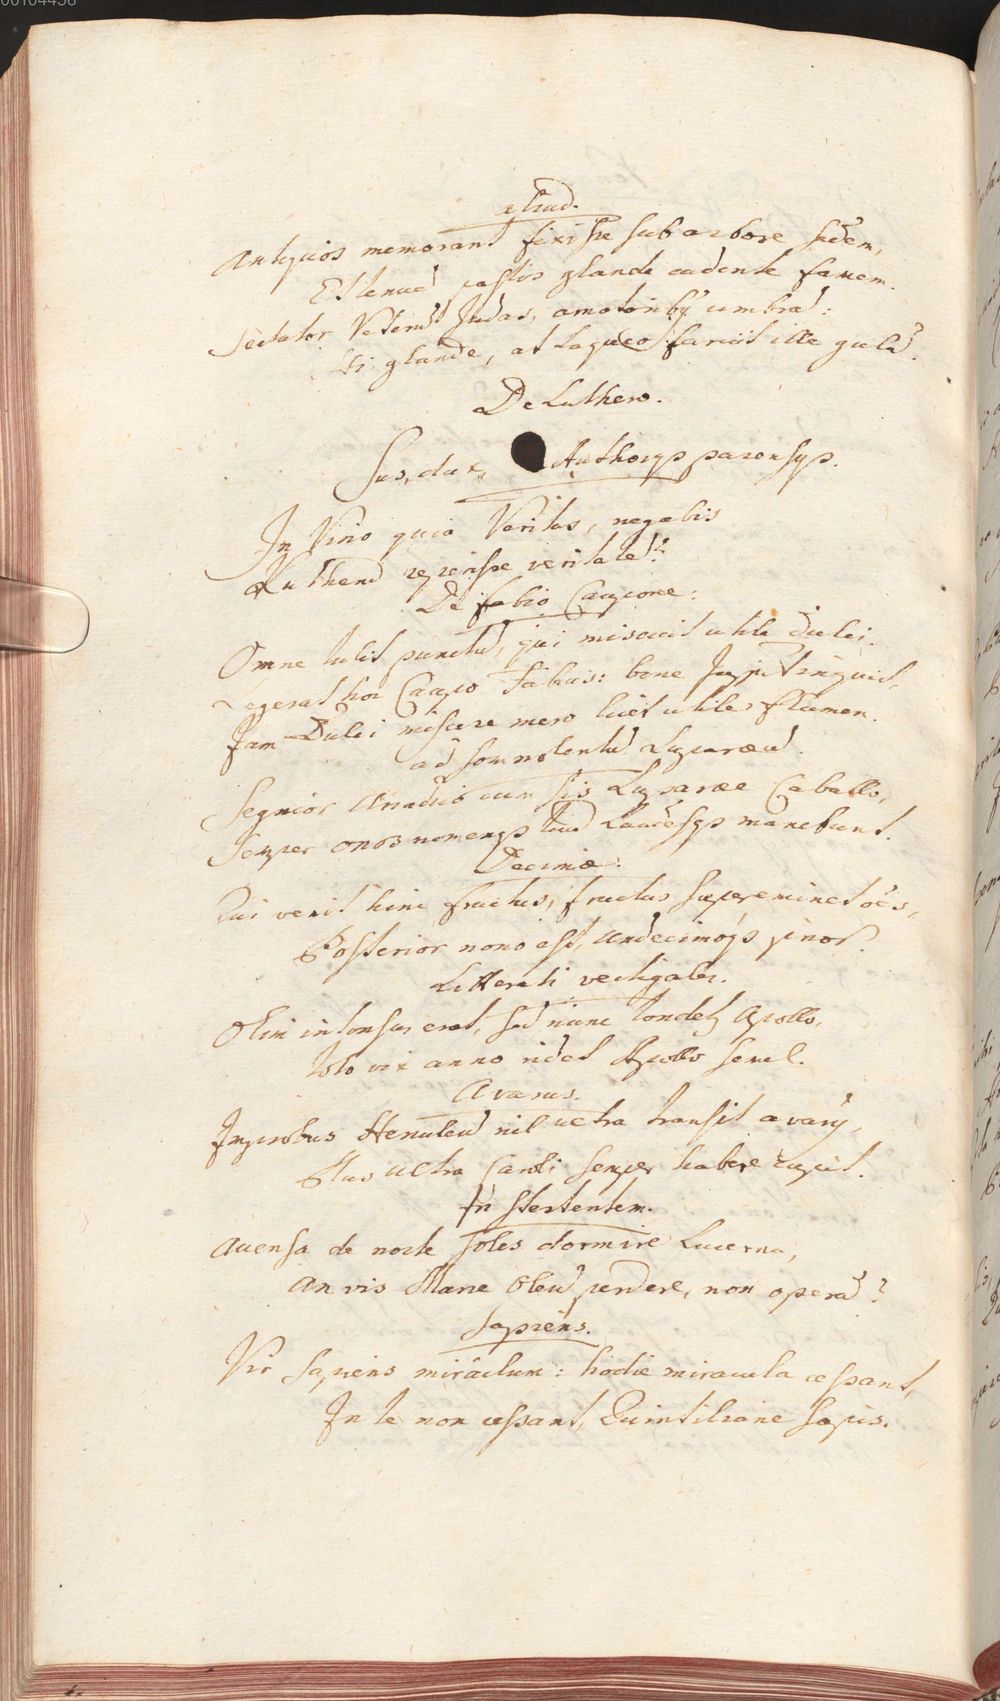 00104456
Aliud.
Antiquos memorant fixisse sub arbore sedem,
Et tenuē pastos glande cadente famem.
Sectator Veterū Judas, amatoribꝫ umbrā:
Hi glande, at laqueo farciit ille gulā.
De Luthero.
Sus, dux, Authorqꝫ parensqꝫ.
In Vino quia Veritas, negabis
Lutherū reperisse veritatē?
De Fabio Caupone:
Omne tulit punctū, qui miscuit utile dulci.
Legerat hoc Caupo Fabius: bene Juppiter inquit,
Jam Dulci miscere mero licet utile flumen.
ad somnolentū
Segnior Arcadico cum sis Caballo,
Semper onos nomenqꝫ tuū Laudesqꝫ manebunt.
Decimæ:
Qui venit hinc fructus, fructus supereminet oēs,
Posterior nono est, undecimoqꝫ prior.
Litterati vectigales.
Olim intonsus erat, sed nunc tondetur Apollo,
toto vix anno ridet Apollo semel.
Avarus.
Improbus Herculeū nil ultra transit avarꝰ,
Plus ultra Caroli semper habere cupit.
In stertentem.
Accensa de nocte soles dormire Lucerna,
An vis Mane oleū perdere, non operā?
Sapiens.
Vir sapiens miraclum: hodie miracula cessant,
In te non cessant, Quintiliane sapis.